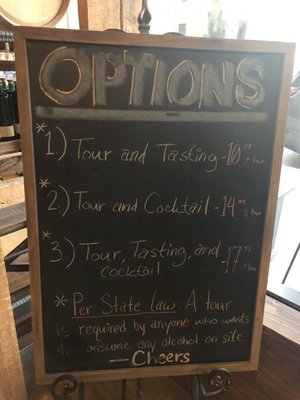 OPTIONS
*1.) Tour and Tasting - 10 + tax
*2.) Tour and Cocktail - 14 + tax
*3.) Tour, Tasting, and - 17 + tax
cocktail
* Per State law: A tour
is required by anyone who wants
to consume any alcohol on site.
— Cheers